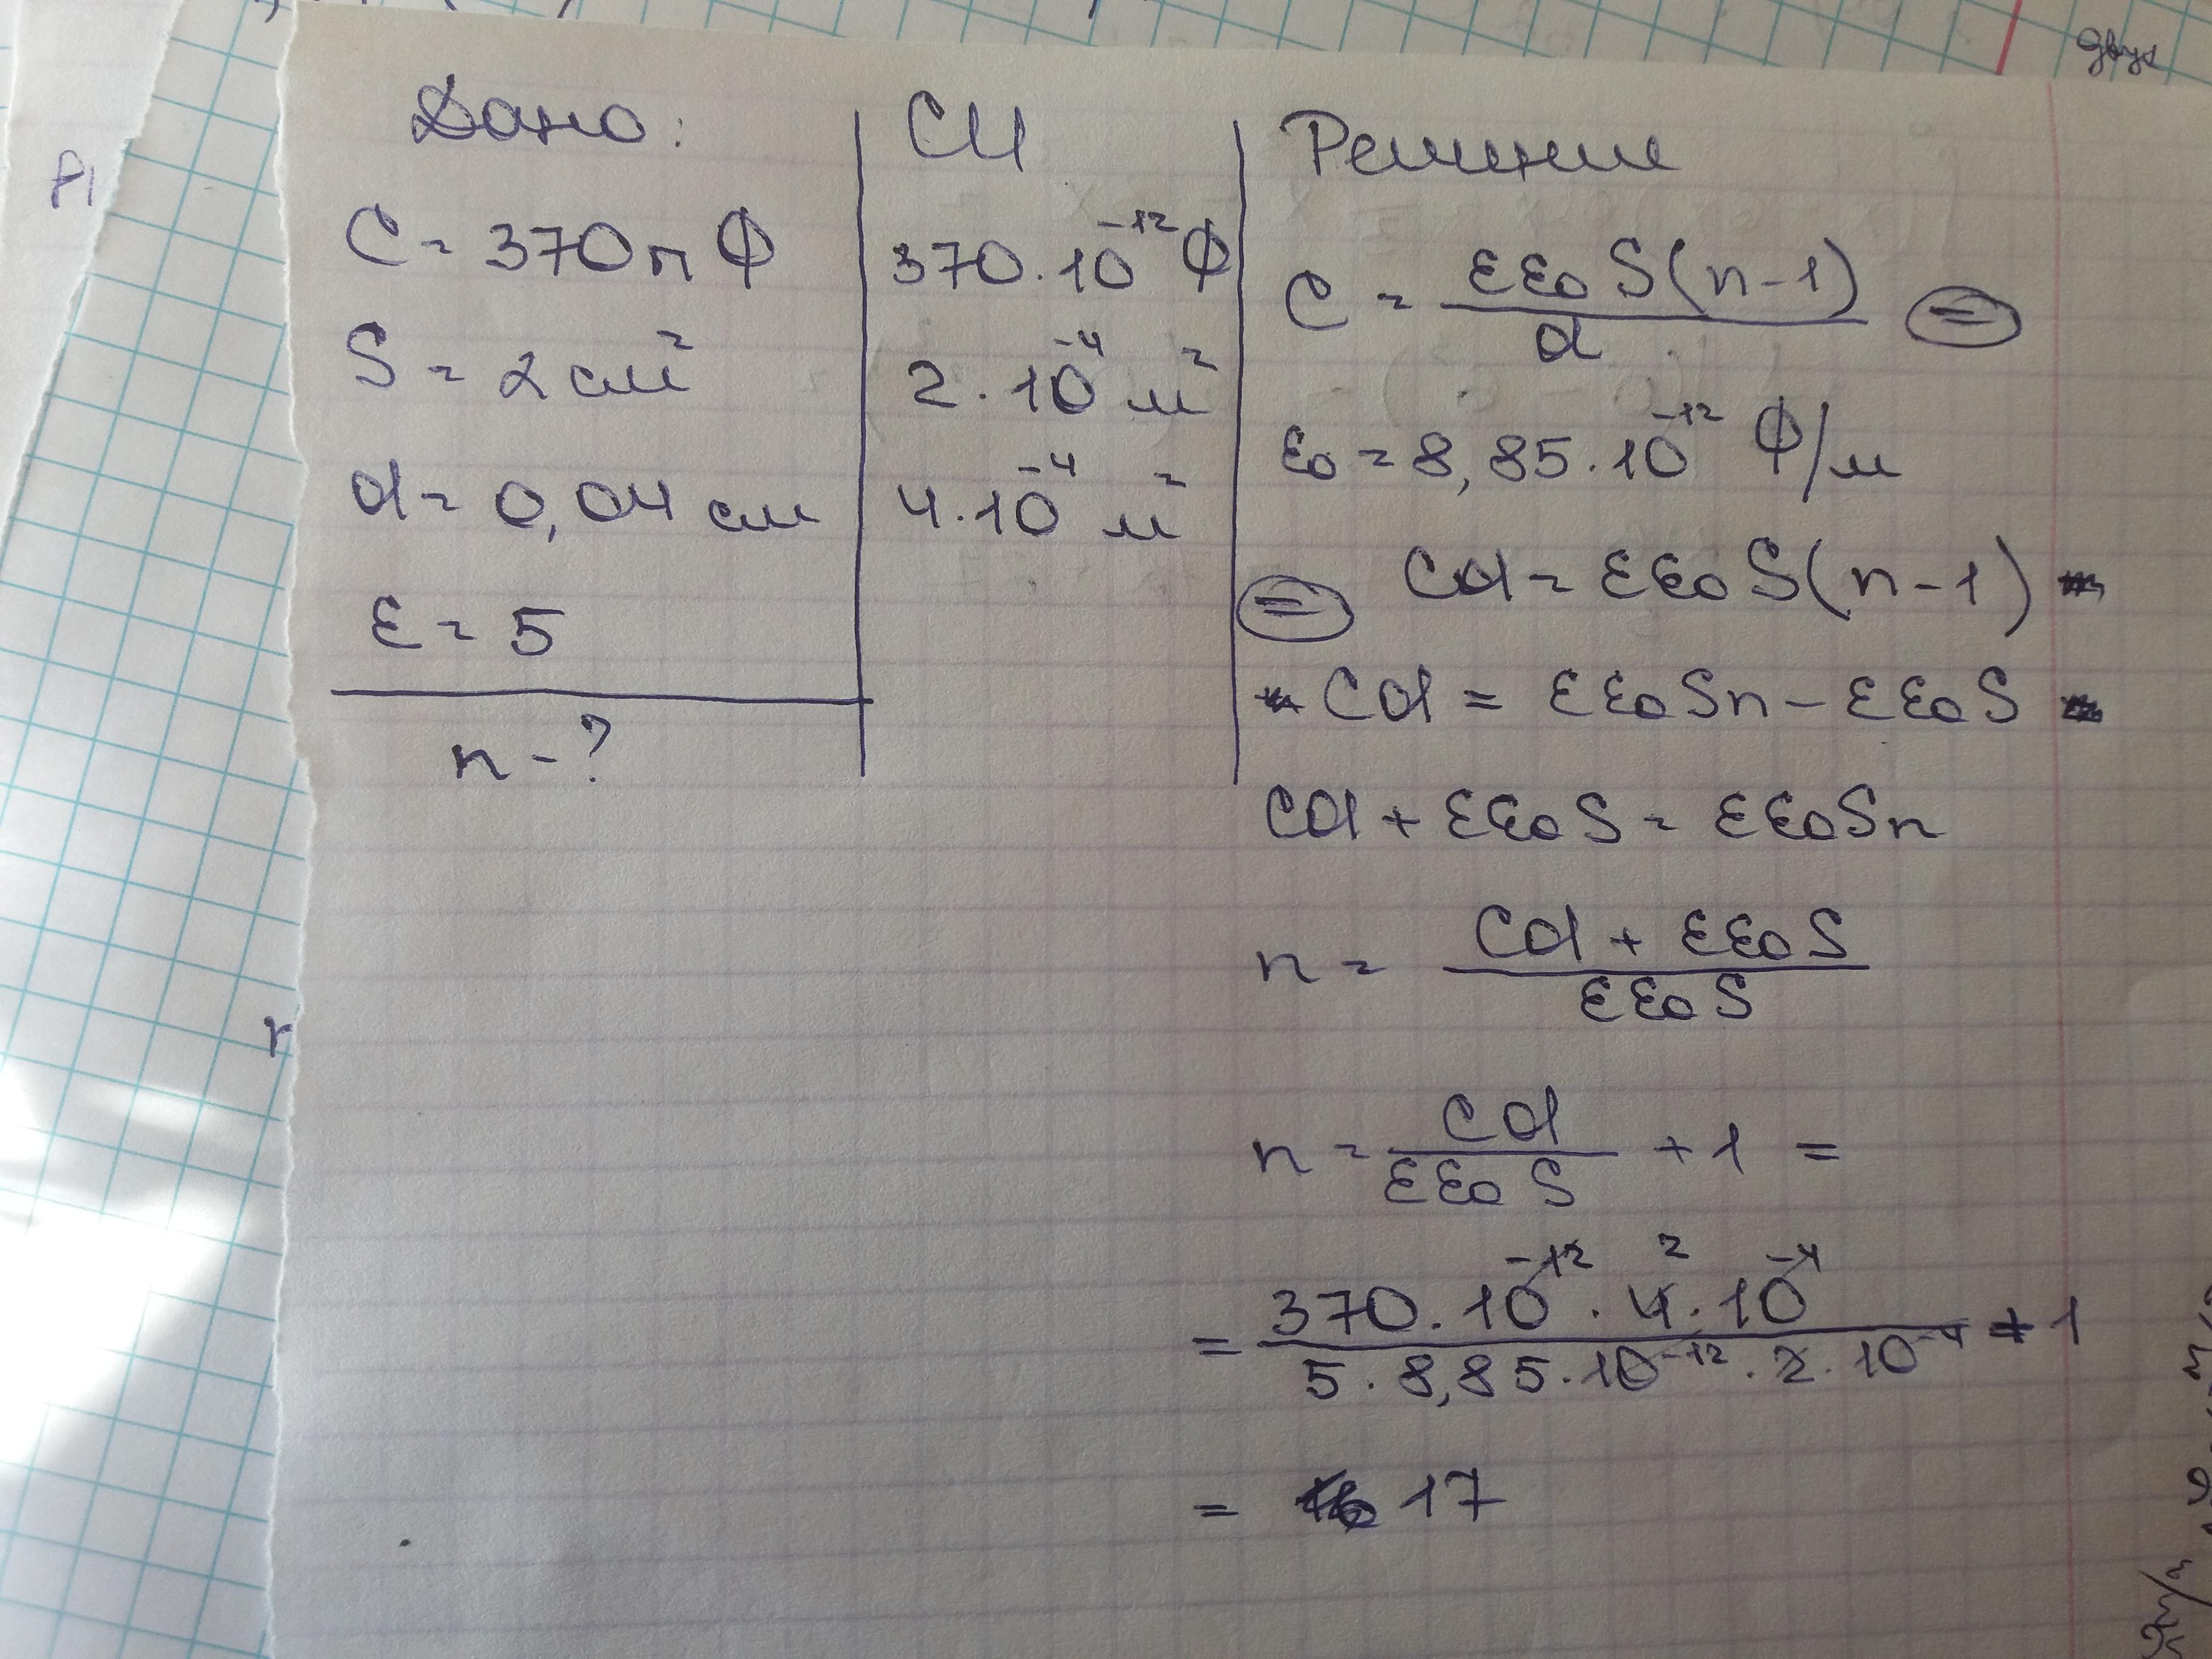 Дано:
C = 370 пФ
S = 2 см²
d = 0,04 см
ε = 5
n - ?
СИ
370·10⁻¹² Ф
2·10⁻⁴ м²
4·10⁻⁴ м²
Решение
C = εε₀S(n-1)/d =
ε₀ = 8,85·10⁻¹² Ф/м
= Cd = εε₀S(n-1)
Cd = εε₀Sn - εε₀S
Cd + εε₀S = εε₀Sn
n = (Cd + εε₀S)/(εε₀S)
n = Cd/(εε₀S) + 1 =
= (370·10⁻¹²·4·10⁻⁴)/(5·8,85·10⁻¹²·2·10⁻⁴) + 1
= 17